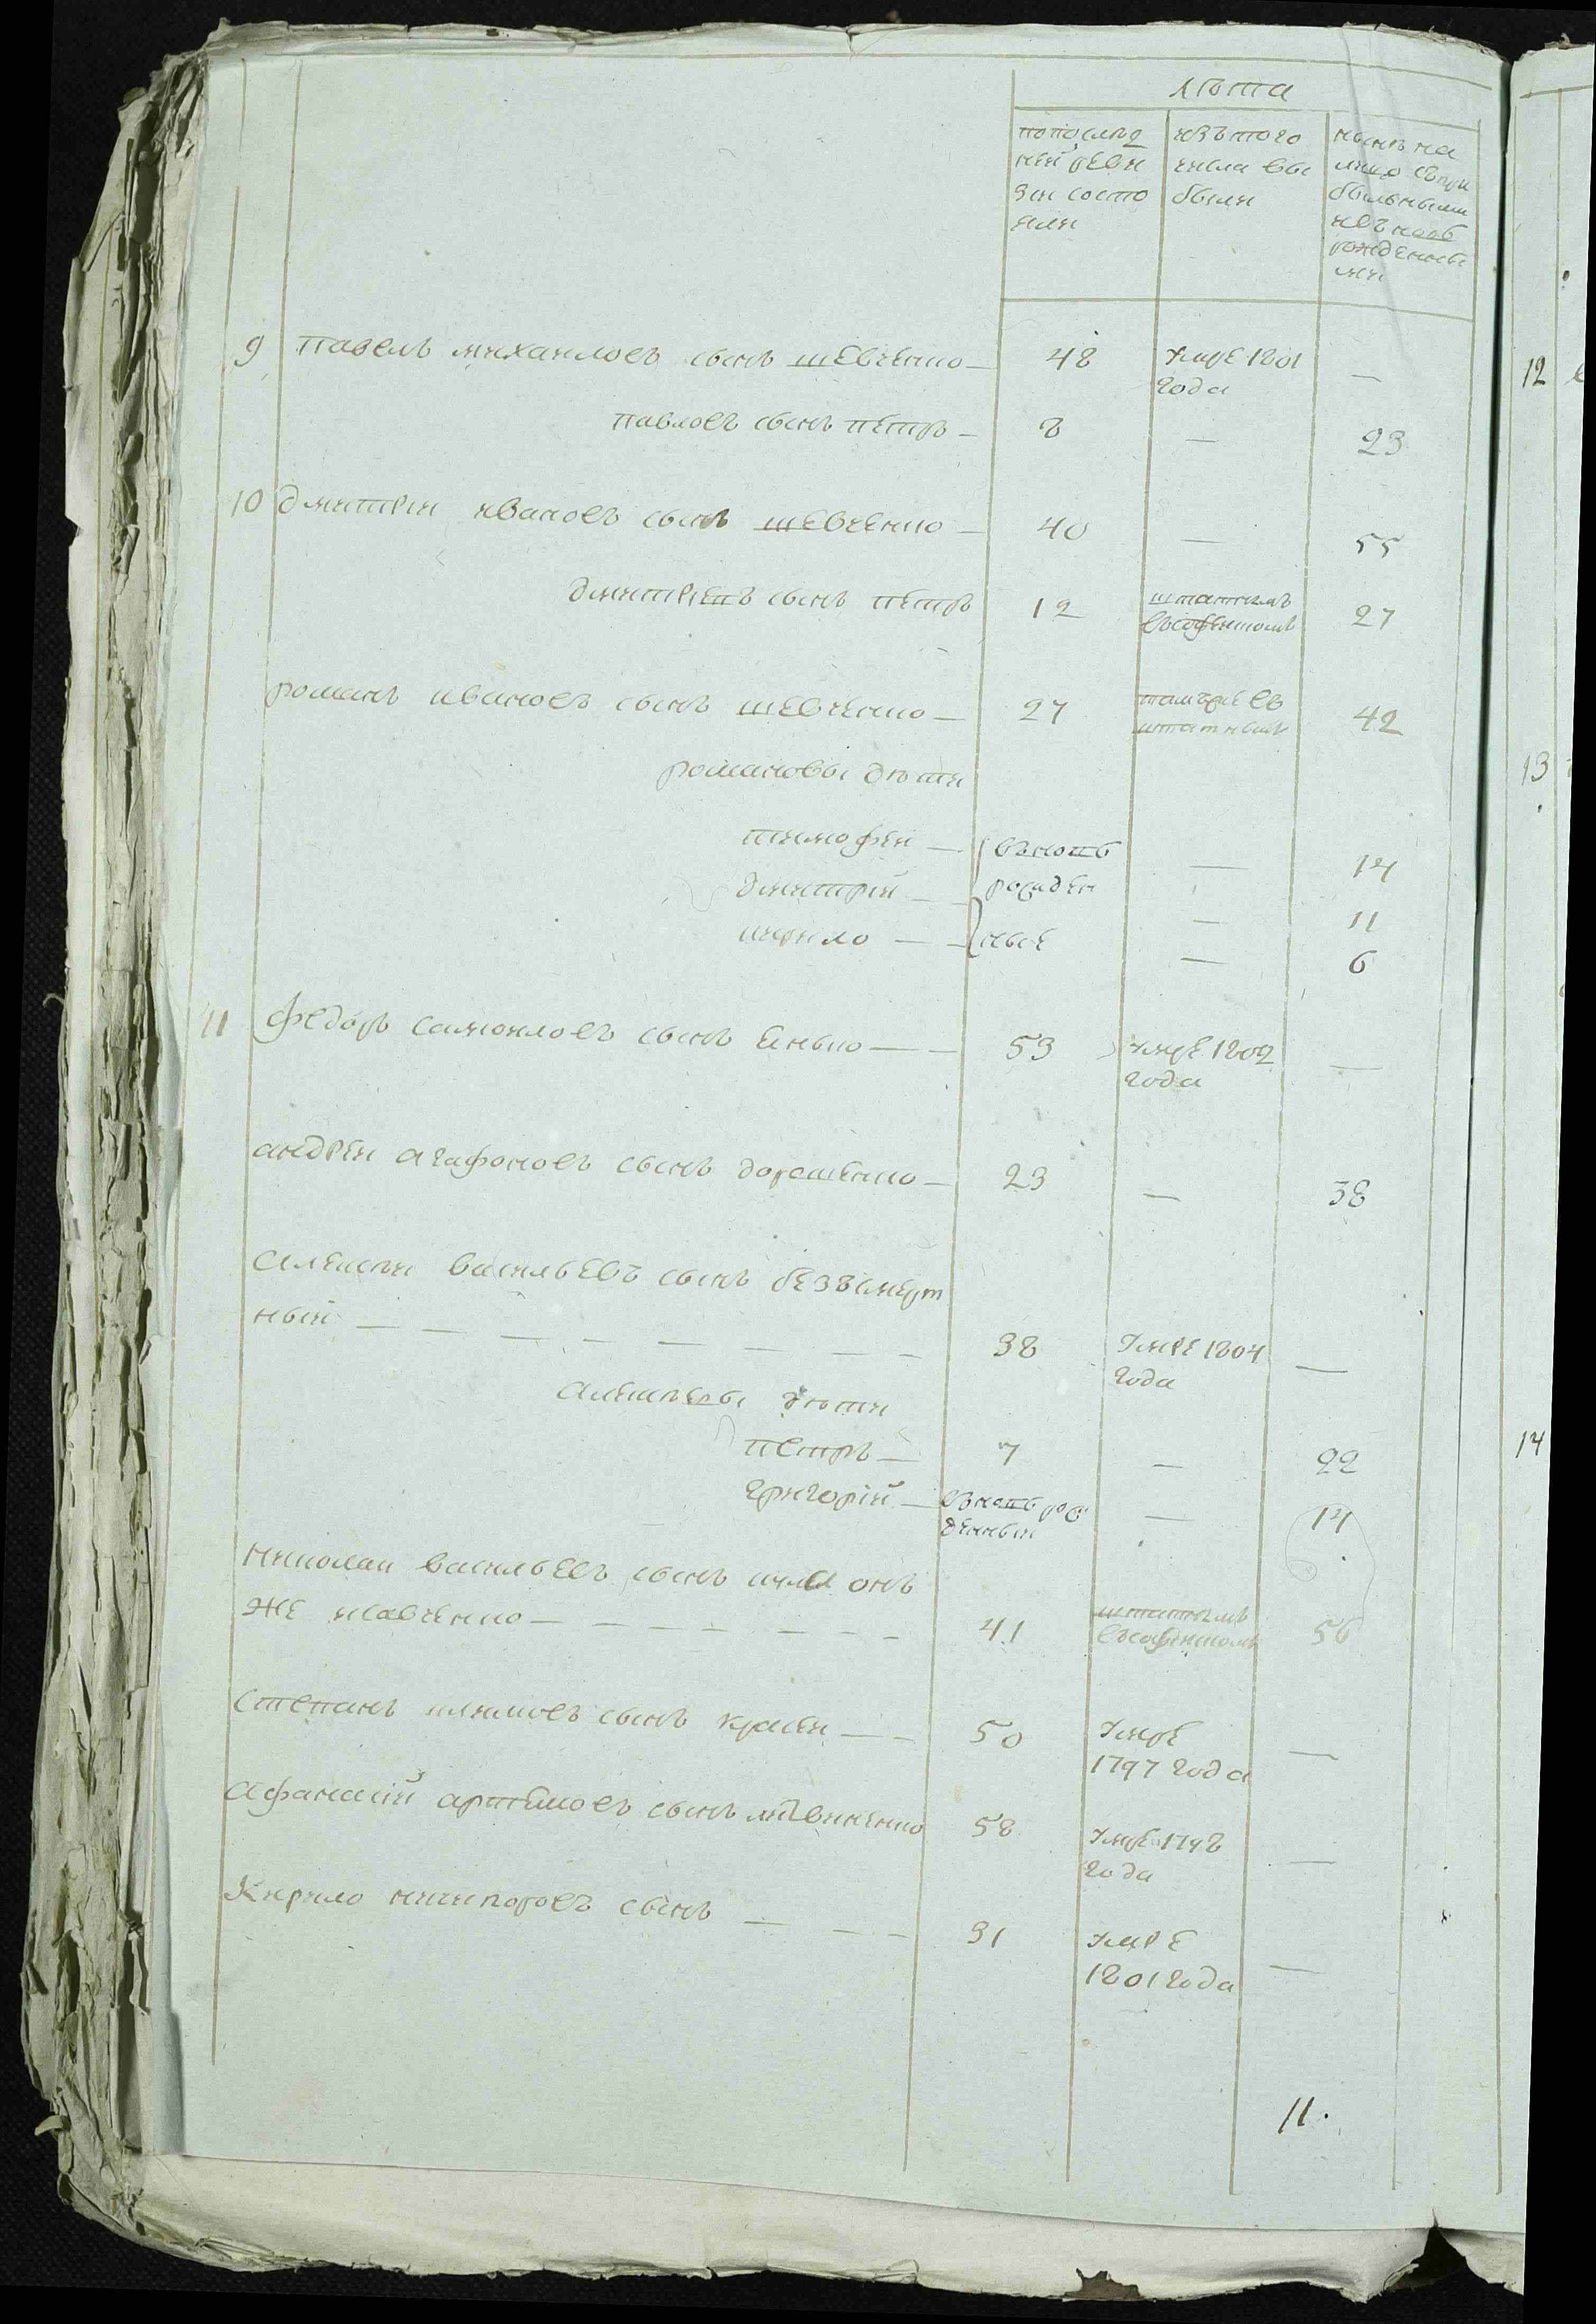 лѣта
попослѣд
ней реви
зіи состо
яли
изътого
числа вы
были
нынѣ на
лицо съпри
былыми
ивъновь
рожденны
ми
9 павелъ михаиловъ сынъ шевченко — 48 умре 1801 —
года
павловъ сынъ петръ — 8 — 23
10 дмитріи ивановъ сынъ шевченко — 40 — 55
дмитріевъ сынъ петръ 12 штатнымъ 27
романъ ивановъ сынъ шевченко — 27 42
штатнымъ
романовы дѣти
тимофеи — вьновь — 14
дмитрій — рожден — 11
кирило — ные — 6
11 федоръ самоиловъ сынъ — 53 умре 1802 —
года
андреи агафоновъ сынъ дорошенко — 23 — 38
алексѣи васильевъ сынъ безъсмерт
ный — 38 умре 1804 —
года
алексѣевы дѣти
петръ — 7 — 22
григорій — вьновь рож — 14
денный
николаи васильевъ сынъ онъ
же савченко — 41 штатнымъ 56
степанъ климовъ сынъ — 50 умре —
1797 года
афанасій артемовъ сынъ литвиненко 58 умре 1798 —
года
кирило ничипоровъ сынъ — 31 умре —
1801 года
11.
12
13
14